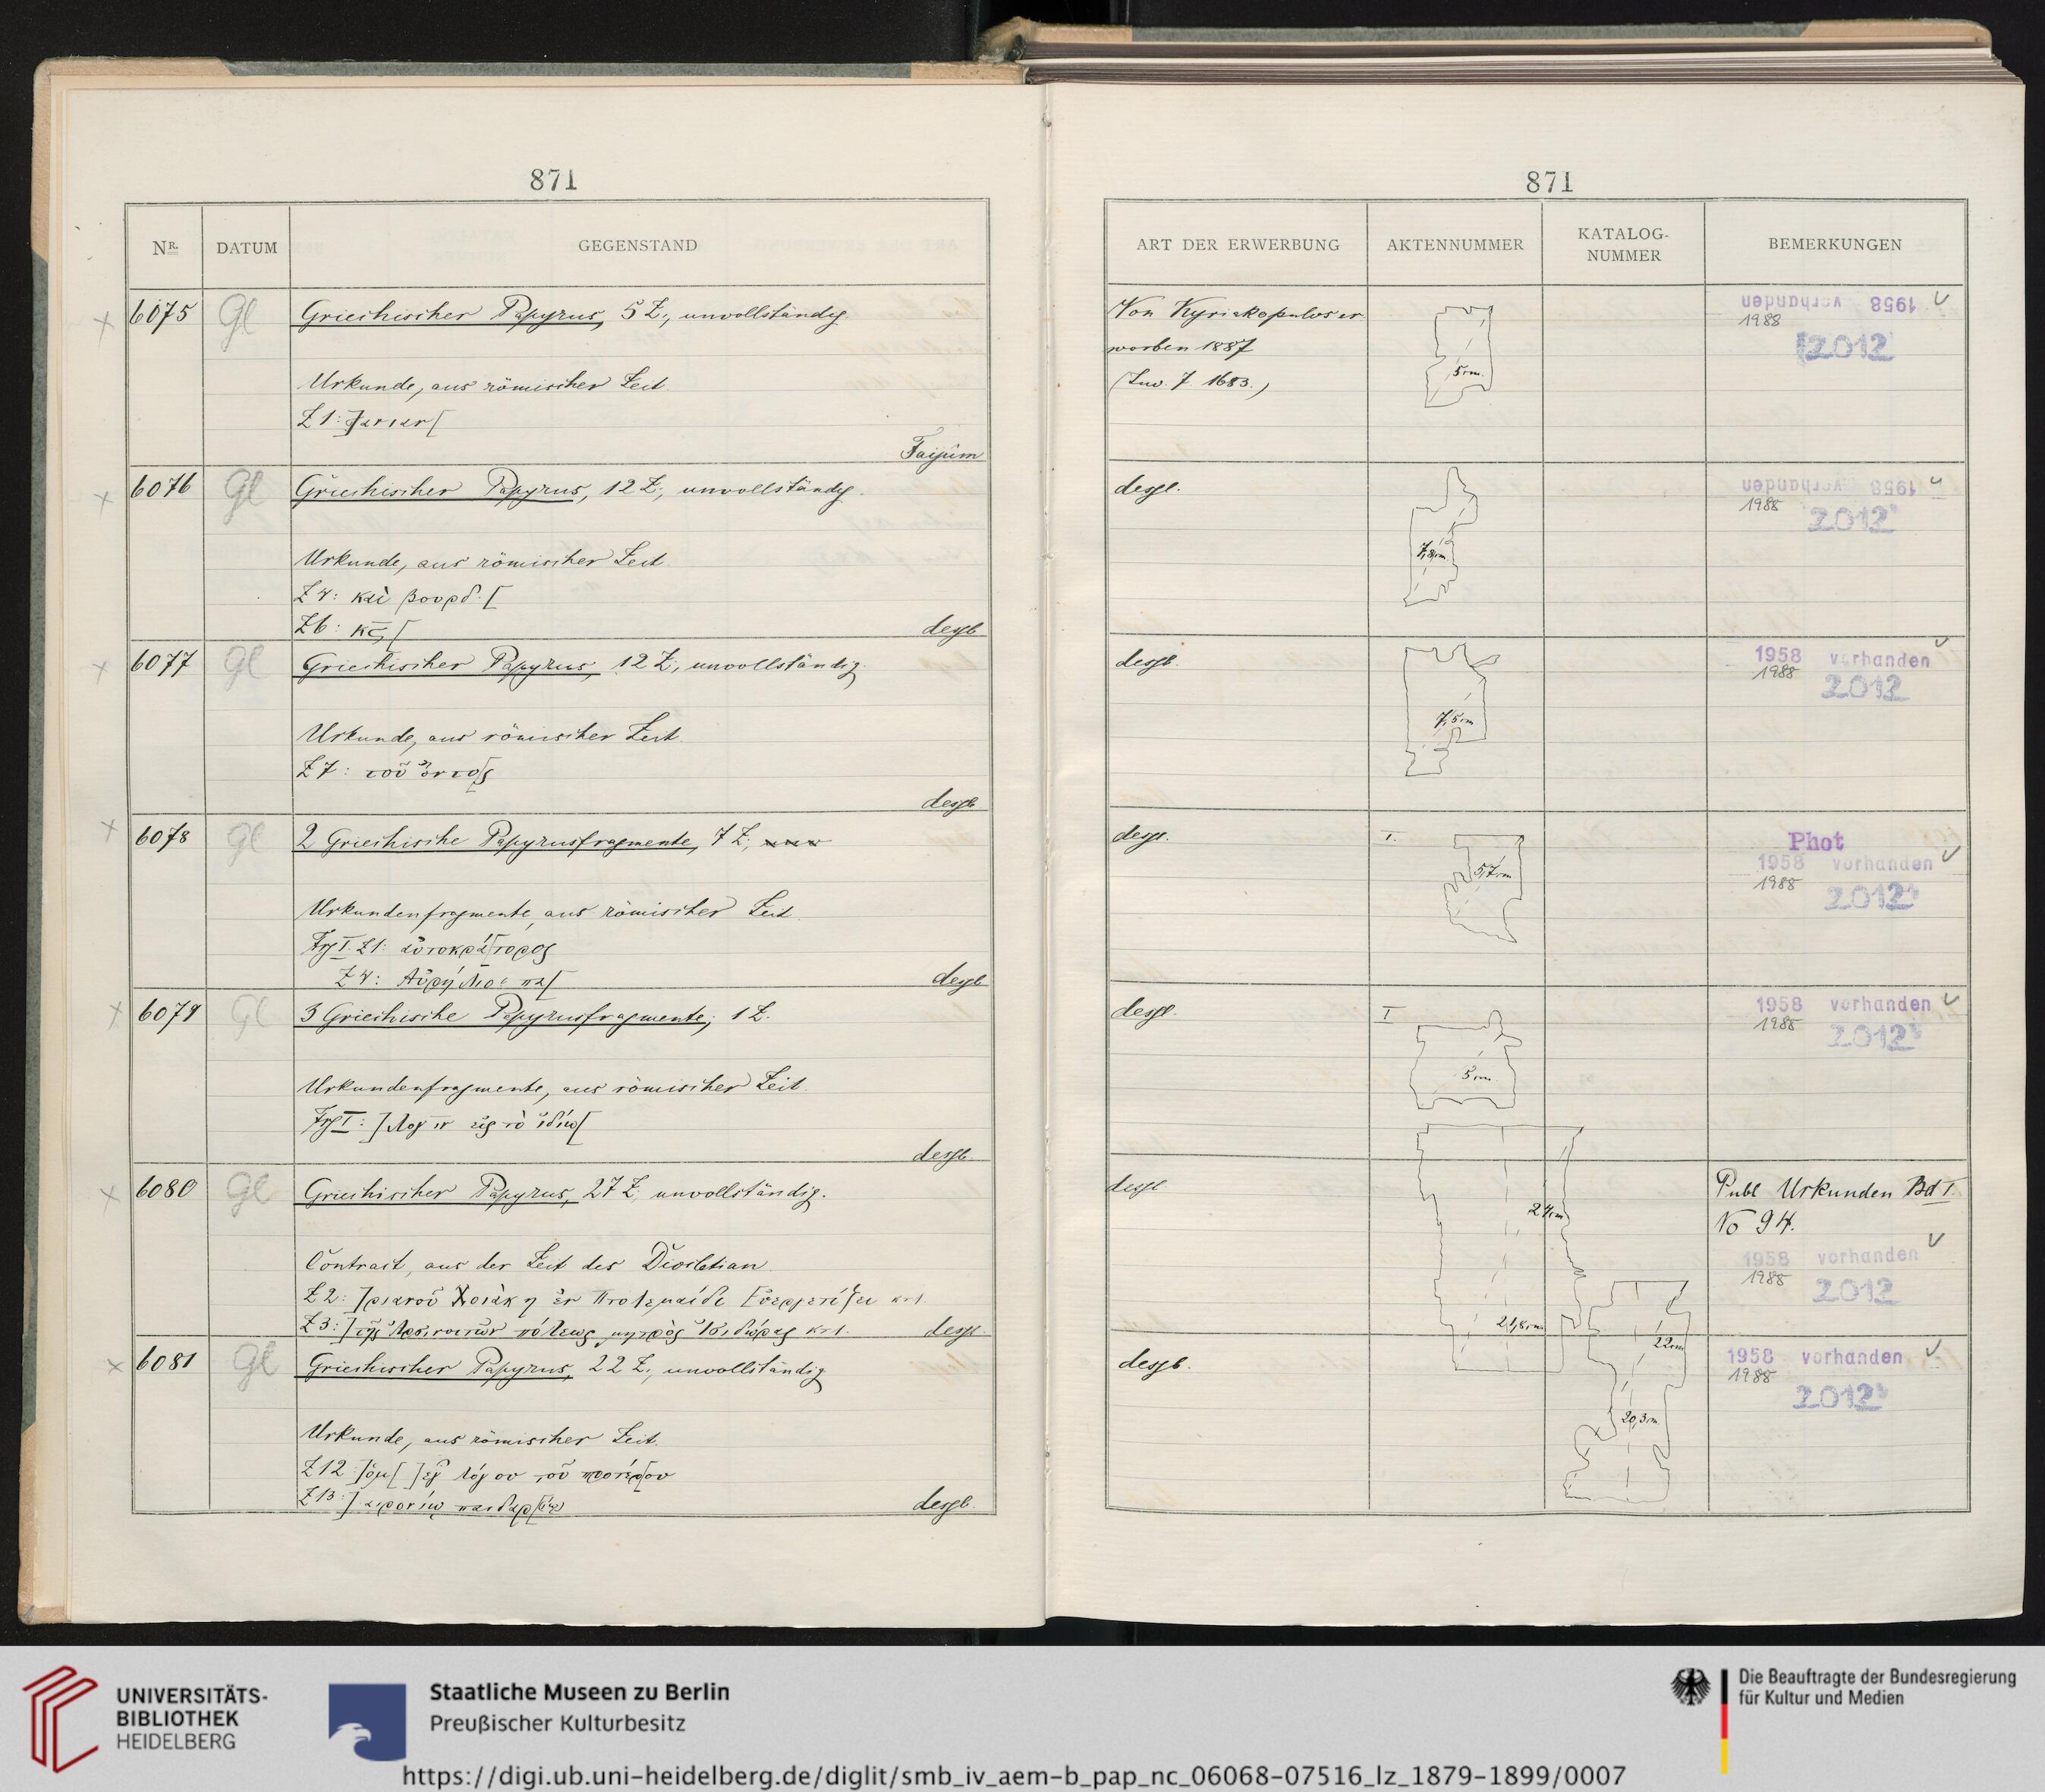 871
Nr. DATUM GEGENSTAND
6075 Gl Griechischer Papyrus, 5 Z., unvollständig.
Urkunde, aus römischer Zeit.
Z 1:
Faijûm
6076 Gl Griechischer Papyrus, 12 Z., unvollständig.
Urkunde, aus römischer Zeit.
Z 4: καὶ βουρδ.[
Z 6: κς [
desgl.
6077 Gl Griechischer Papyrus, 12 Z., unvollständig.
Urkunde, aus römischer Zeit.
Z 7: τοῦ ὄντο[ς
desgl.
6078 Gl 2 Griechische Papyrusfragmente, 7 Z.,
Urkundenfragmente, aus römischer Zeit.
Frg I. Z 1: αὐτοκρά[τορος
Z 4: Αὐρήλιος πα[
desgl.
6079 Gl 3 Griechische Papyrusfragmente, 1 Z.
Urkundenfragmente, aus römischer Zeit.
Frg I: εἰς τὸ ἰδίω[
desgl.
6080 Gl Griechischer Papyrus, 27 Z., unvollständig.
Contract, aus der Zeit des Diocletian.
Z 2: ]ριανοῦ Χοιὰκ η ἐν Πτολεμαίδι Εὐεργετί[δι κτλ.
Z 3: ]τῆς Ἀρσινοιτῶν πόλεως μητρὸς Ἰσιδώρας κτλ.
desgl.
6081 Gl Griechischer Papyrus, 22 Z., unvollständig
Urkunde, aus römischer Zeit.
Z 12: λόγου τοῦ προτέρ[ου
Z 13:
desgl.
871
ART DER ERWERBUNG AKTENNUMMER KATALOG-NUMMER BEMERKUNGEN
Von Kyriakopulos er
worben 1887
(Inv. J. 1683.)
5 cm
1958 vorhanden
1988
2012
desgl.
7,8 cm
1958 vorhanden
1988
2012
desgl.
7,5 cm
1958 vorhanden
1988
2012
desgl.
I.
5,7 cm
Phot
1958 vorhanden
1988
2012
desgl.
I
5 cm
1958 vorhanden
1988
2012
desgl
24 cm
21,8 cm
Publ Urkunden Bd I.
No 94.
1958 vorhanden
1988
2012
desgl.
22 cm
20,3 cm
1958 vorhanden
1988
2012
UNIVERSITÄTS-
BIBLIOTHEK
HEIDELBERG
Staatliche Museen zu Berlin
Preußischer Kulturbesitz
Die Beauftragte der Bundesregierung
für Kultur und Medien
https://digi.ub.uni-heidelberg.de/diglit/smb_iv_aem-b_pap_nc_06068-07516_lz_1879-1899/0007